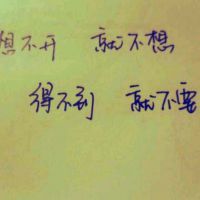 想不开 就不想
得不到 就不要